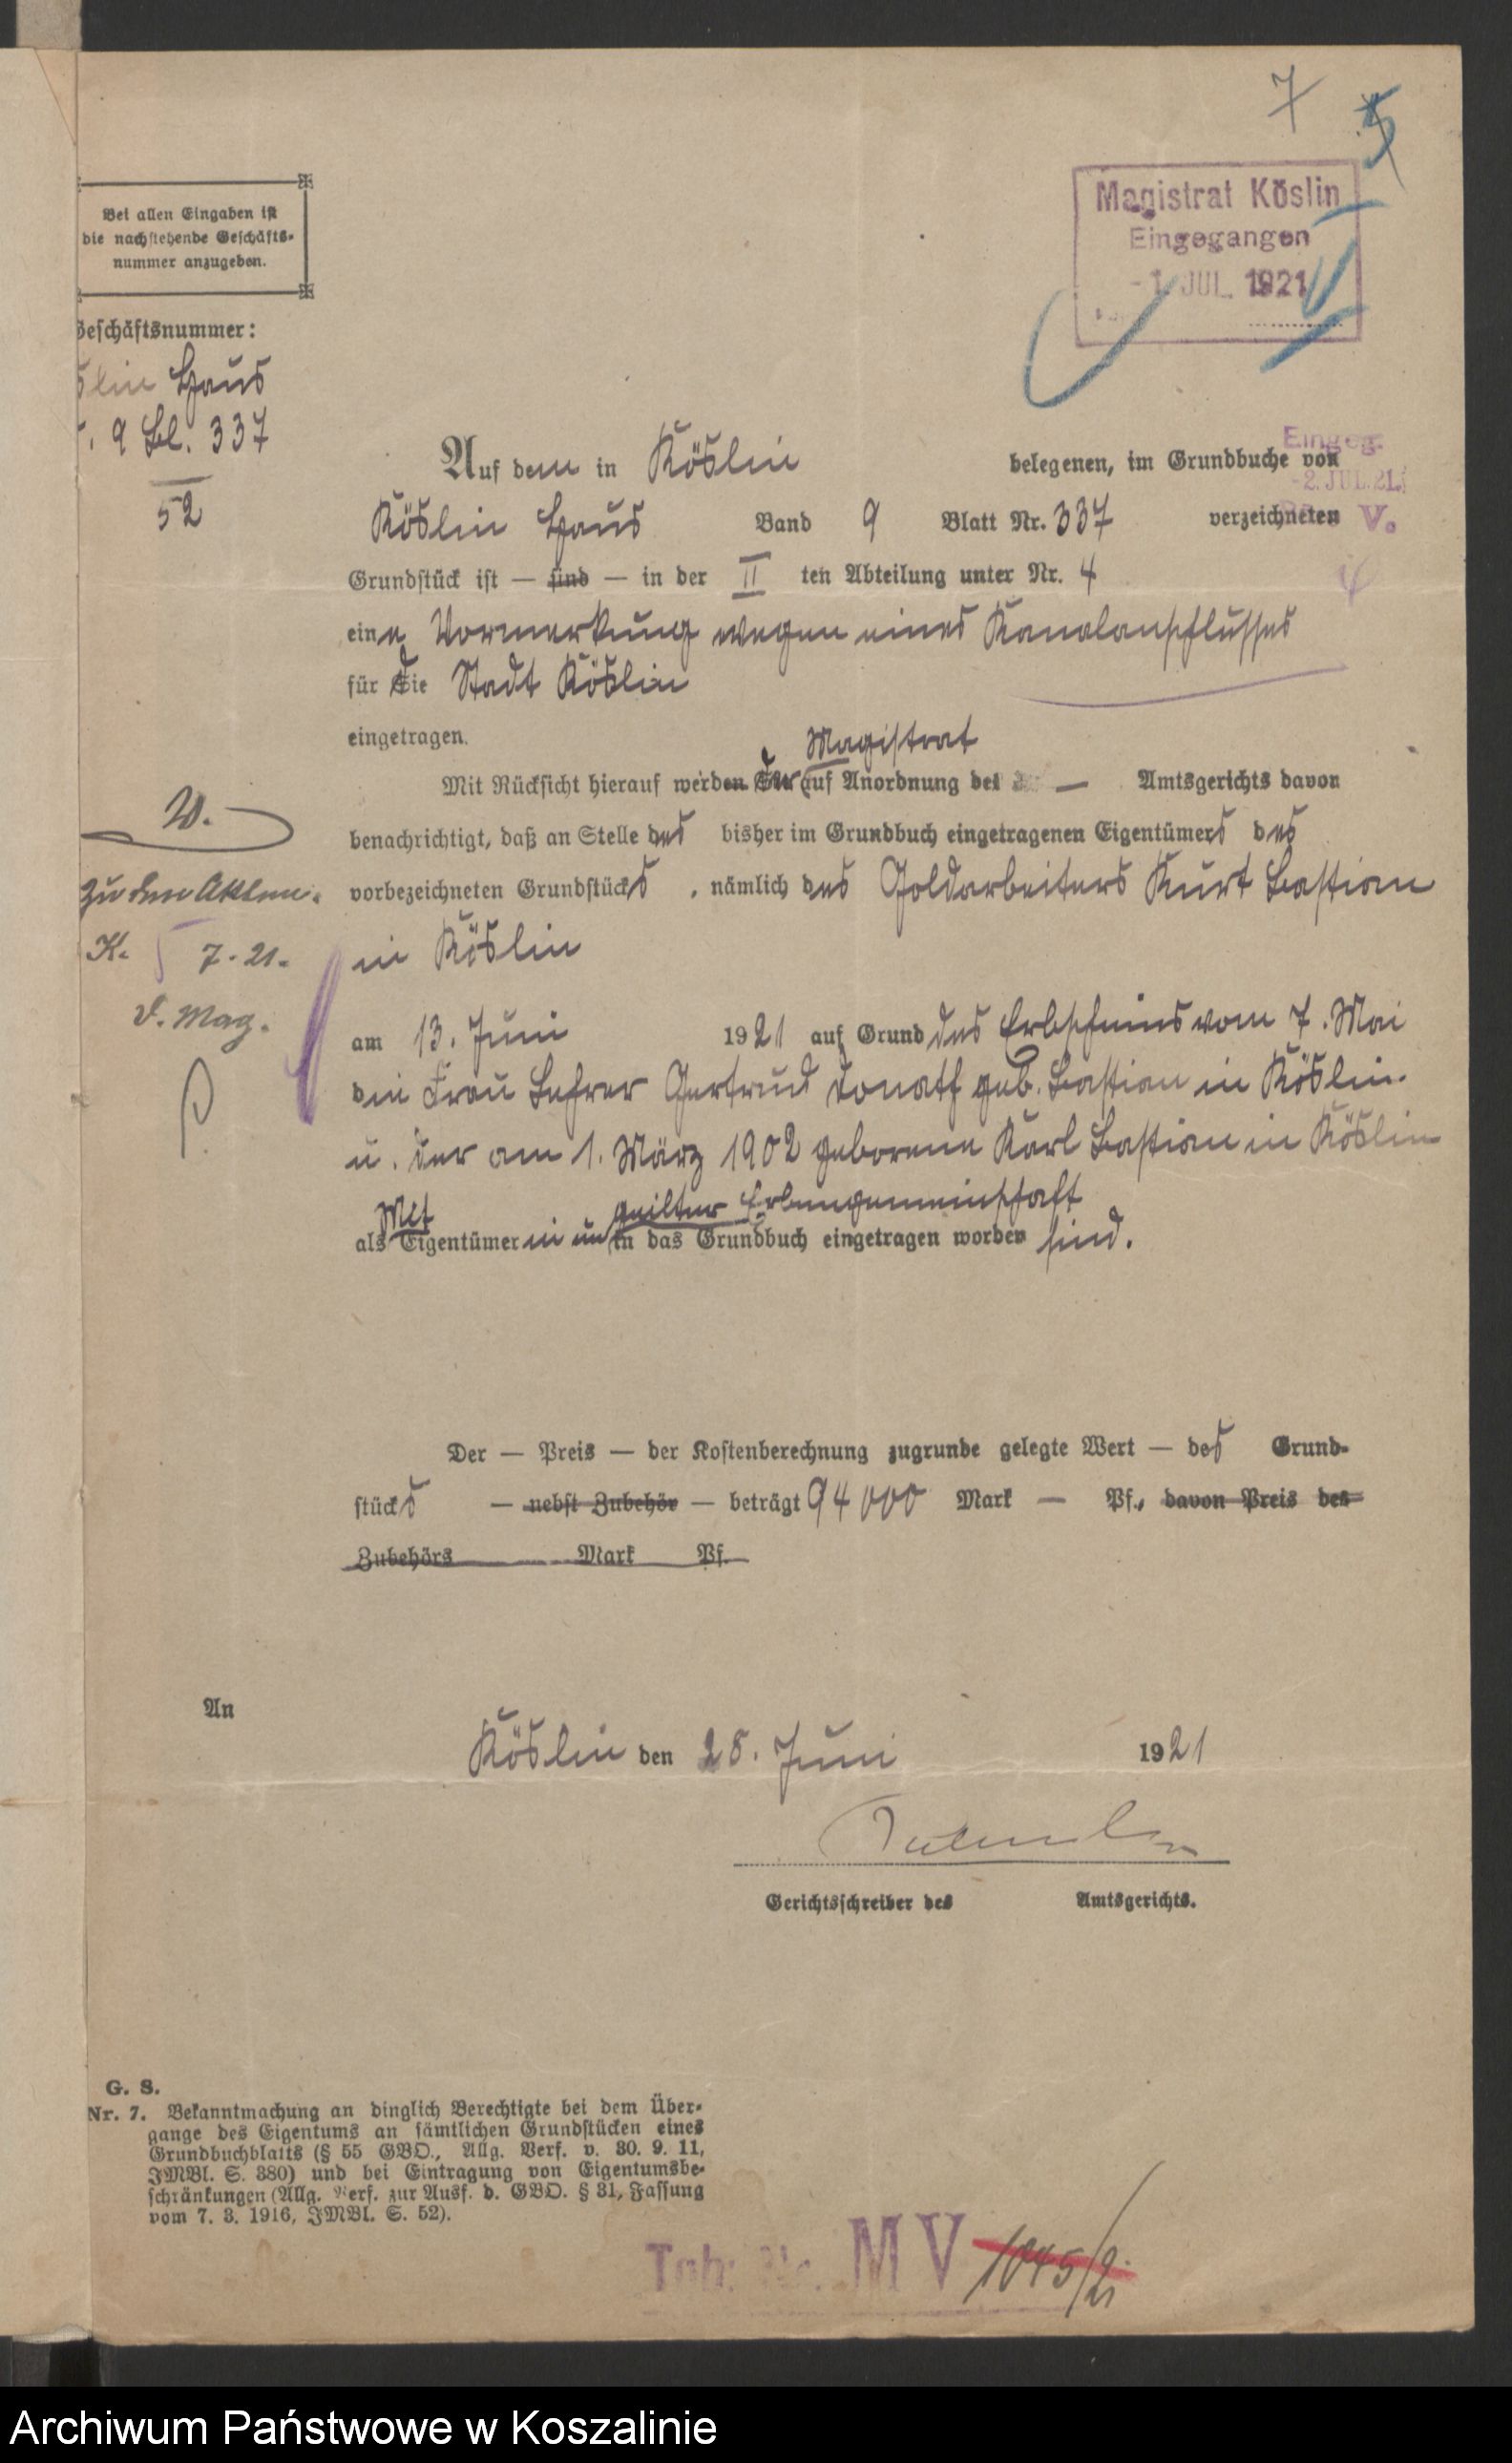 7 5
Magistrat Köslin
Eingegangen
- 1. JUL. 1921
Bei allen Eingaben ist
die nachstehende Geschäfts-
nummer anzugeben.
Geschäftsnummer:
slin Haus
9 Bl. 337
52
Eingeg.
- 2. JUL. 21.
V.
Auf dem in Köslin belegenen, im Grundbuche von
Köslin Haus Band 9 Blatt Nr. 337 verzeichneten
Grundstück ist — sind — in der II ten Abteilung unter Nr. 4
eine Vormerkung wegen eines Kanalanschlusses
für die Stadt Köslin
eingetragen.
Magistrat
Mit Rücksicht hierauf werden der auf Anordnung des — Amtsgerichts davon
benachrichtigt, daß an Stelle des bisher im Grundbuch eingetragenen Eigentümers des
vorbezeichneten Grundstücks, nämlich des Goldarbeiters Kurt Bastian
in Köslin
am 13. Juni 1921 auf Grund des Erbscheins vom 7. Mai
die Frau Lehrer Gertrud Donath geb. Bastian in Köslin
u. der am 1. März 1902 geborene Karl Bastian in Köslin
Mit geilter Erbengemeinschaft
als Eigentümer in un in das Grundbuch eingetragen worden sind.
W.
Zu den Akten.
K. 5 7. 21.
D. Mag.
P.
Der — Preis — der Kostenberechnung zugrunde gelegte Wert — des Grund-
stücks — nebst Zubehör — beträgt 94 000 Mark — Pf., davon Preis des
Zubehörs Mark Pf.
An
Köslin den 28. Juni 1921
Gerichtsschreiber des Amtsgerichts.
G. S.
Nr. 7. Bekanntmachung an dinglich Berechtigte bei dem Über-
gange des Eigentums an sämtlichen Grundstücken eines
Grundbuchblatts (§ 55 GBO., Allg. Verf. v. 30. 9. 11,
JMBl. S. 380) und bei Eintragung von Eigentumsbe-
schränkungen (Allg. Verf. zur Ausf. d. GBO. § 31, Fassung
vom 7. 3. 1916, JMBl. S. 52).
Tgb: Nr. M V 1045/21
Archiwum Państwowe w Koszalinie